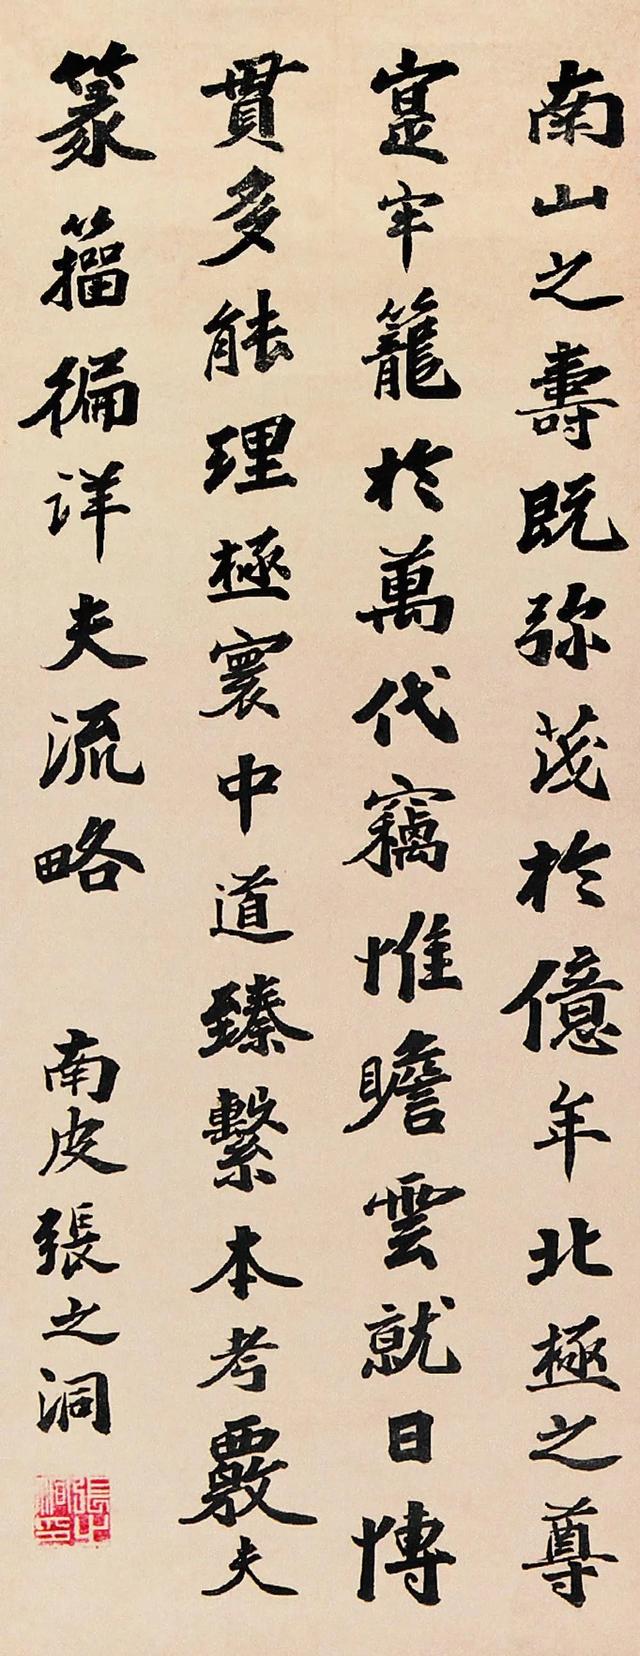 南山之壽既弥茂於億年北極之尊
寔牢籠於萬代竊惟瞻雲就日博
貫多能理極寰中道臻繫本考覈夫
篆籀徧詳夫流略
南皮張之洞
張之洞印